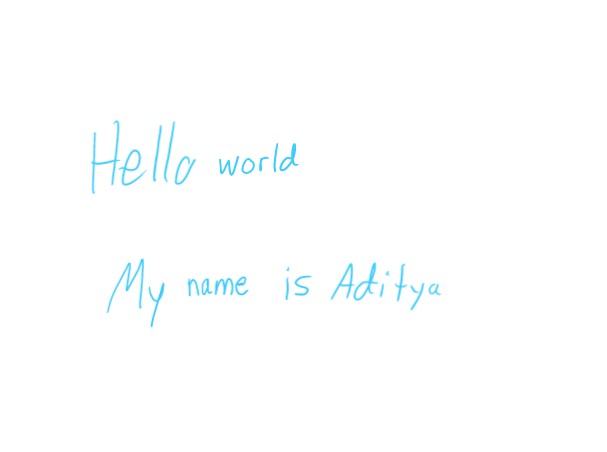 Hello world
My name is Aditya